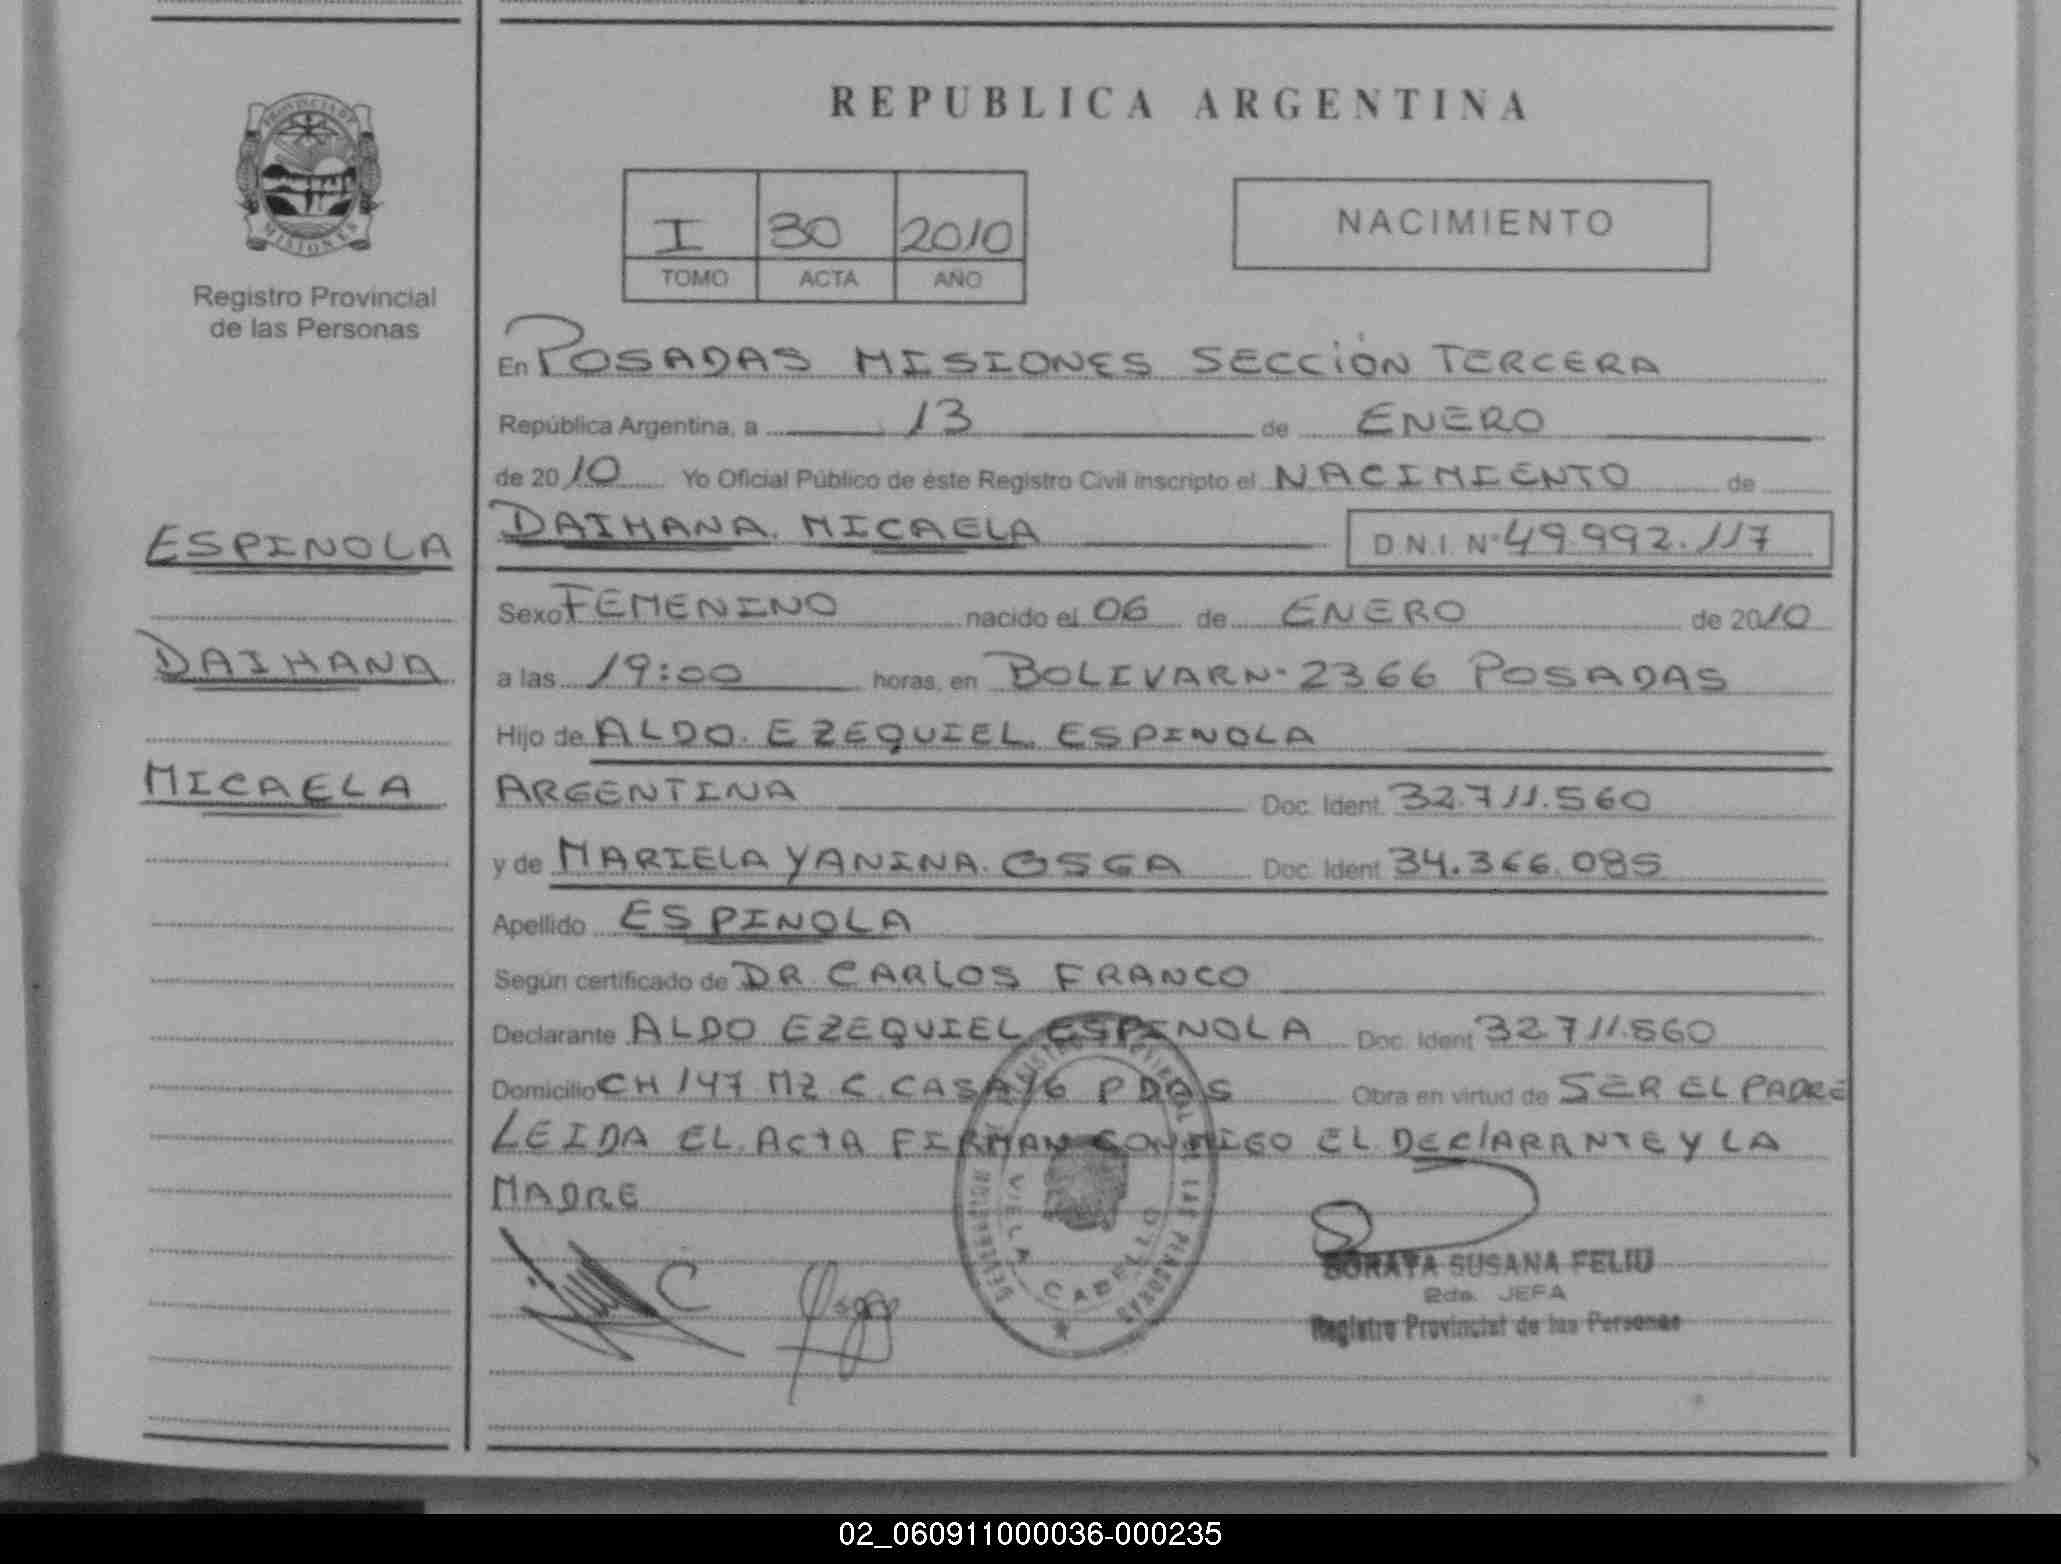 PROVINCIA DE
MISIONES
Registro Provincial
de las Personas
ESPINOLA
DAIHANA
MICAELA
REPUBLICA ARGENTINA
I 30 2010
TOMO ACTA AÑO
NACIMIENTO
En POSADAS MISIONES SECCIÓN TERCERA
República Argentina, a 13 de ENERO
de 2010 Yo Oficial Público de éste Registro Civil inscripto el NACIMIENTO de
DAIHANA. MICAELA D.N.I. Nº 49.992.117
Sexo FEMENINO nacido el 06 de ENERO de 2010
a las 19:00 horas, en BOLIVAR N· 2366 POSADAS
Hijo de ALDO. EZEQUIEL. ESPINOLA
ARGENTINA Doc. Ident. 32.711.560
y de MARIELA YANINA. OSGA Doc. Ident 34.366.085
Apellido ESPINOLA
Según certificado de DR. CARLOS FRANCO
Declarante ALDO EZEQUIEL ESPINOLA Doc. Ident 32711.560
Domicilio CH 147 MZ C. CASA 16 PDAS Obra en virtud de SER EL PADRE
LEIDA EL ACTA FIRMAN CONMIGO EL DEClARANTE Y LA
MADRE
VILLA CABELLO
SORAYA SUSANA FELIU
2da. JEFA
Registro Provincial de las Personas
02_060911000036-000235